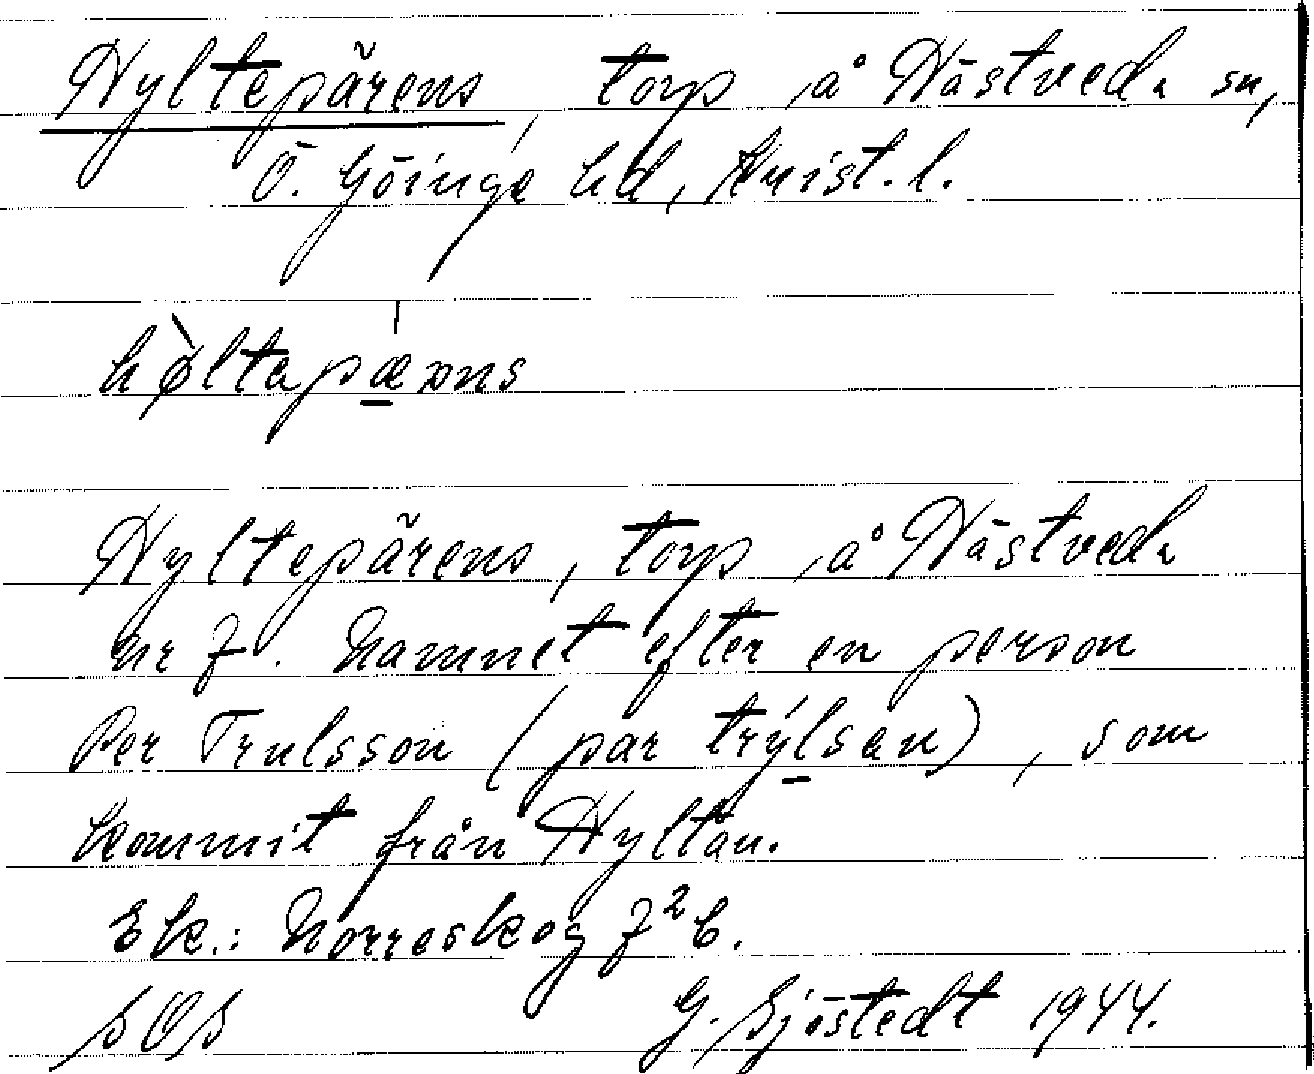 Hyltepärens, torp å Hästveda sn,
Ö. Göinge hd, Krist. l.
hø̀ltapæᴙns
Hyltepärens, torp å Hästveda
nr 7. Namnet efter en person
Per Trulsson (par trýlsan), som
kommit från Hyltan.
Ek.: Norreskog 7²b.
SOS G. Sjöstedt 1944.